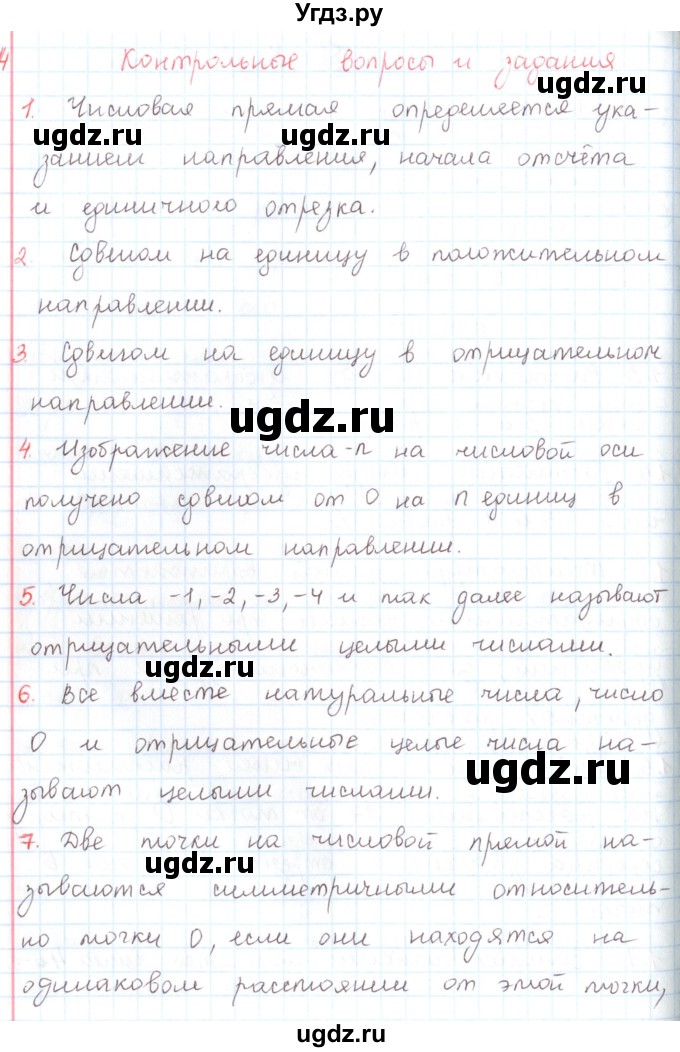 Угдз.ру
4
Контрольные вопросы и задания
1. Числовая прямая определяется ука-
занием направления, начала отсчёта
и единичного отрезка.
2. Сдвигом на единицу в положительном
направлении.
3. Сдвигом на единицу в отрицательном
направлении.
4. Изображение числа -n на числовой оси
получено сдвигом от 0 на n единиц в
отрицательном направлении.
5. Числа -1, -2, -3, -4 и так далее называют
отрицательными целыми числами.
6. Все вместе натуральные числа, число
0 и отрицательные целые числа на-
зывают целыми числами.
7. Две точки на числовой прямой на-
зываются симметричными относитель-
но точки 0, если они находятся на
одинаковом расстоянии от этой точки,
ugdz.ru
ugdz.ru
ugdz.ru
ugdz.ru
ugdz.ru
ugdz.ru
ugdz.ru
ugdz.ru
ugdz.ru